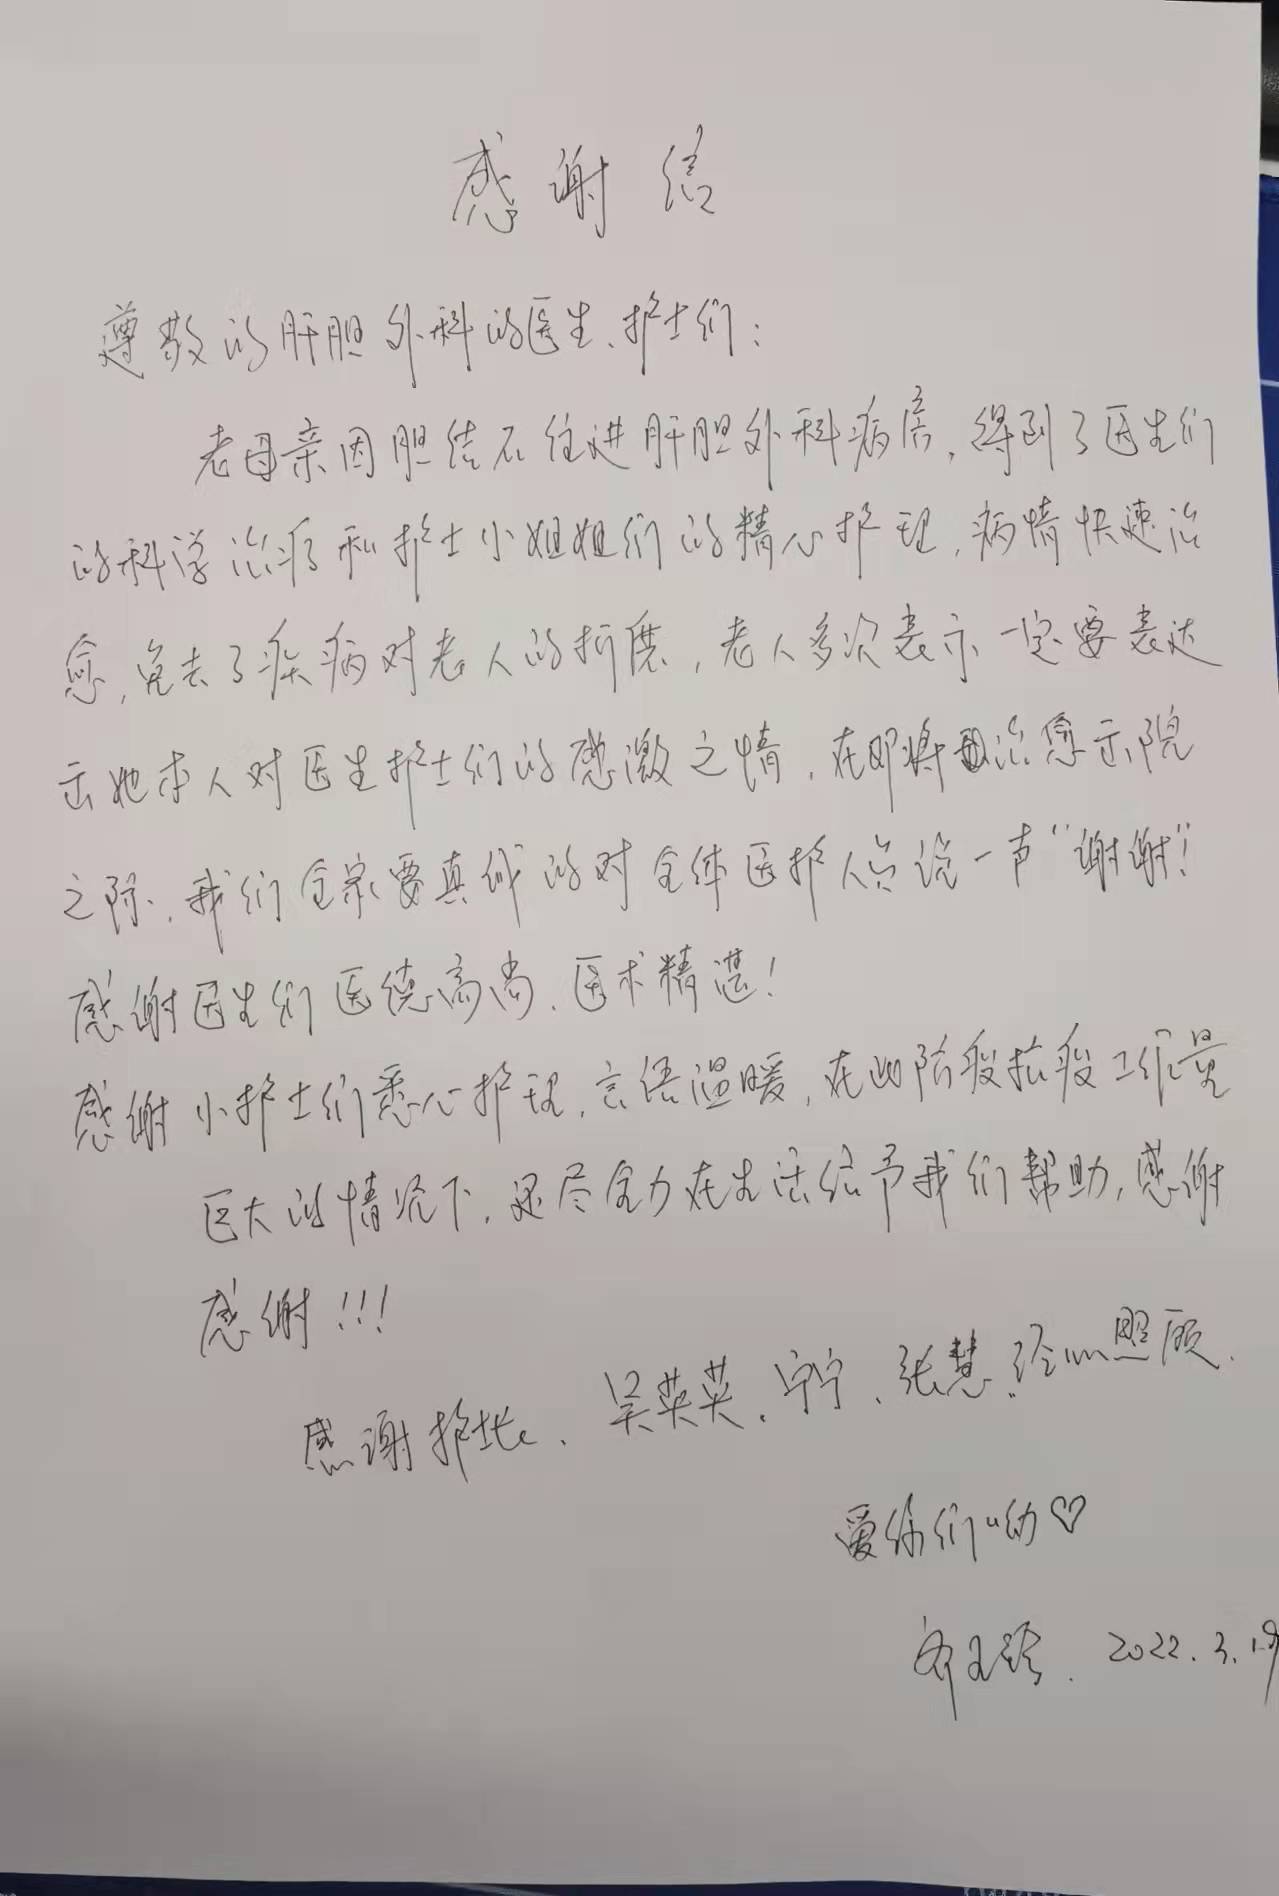 感谢信
尊敬的肝胆外科的医生、护士们：
老母亲因胆结石住进肝胆外科病房，得到了医生们
的科学治疗和护士小姐姐们的精心护理，病情快速治
愈，免去了疾病对老人的折磨，老人多次表示一定要表达
出她本人对医生护士们的感激之情，在即将治愈出院
之际，我们全家要真诚的对全体医护人员说一声“谢谢”！
感谢医生们医德高尚、医术精湛！
感谢小护士们悉心护理，言语温暖，在此阶段抗疫工作量
巨大的情况下，还尽全力在生活给予我们帮助，感谢
感谢！！！
感谢护士长、吴英英、宁宁、张慧、经心照顾.
爱你们哟♡
2022.3.19